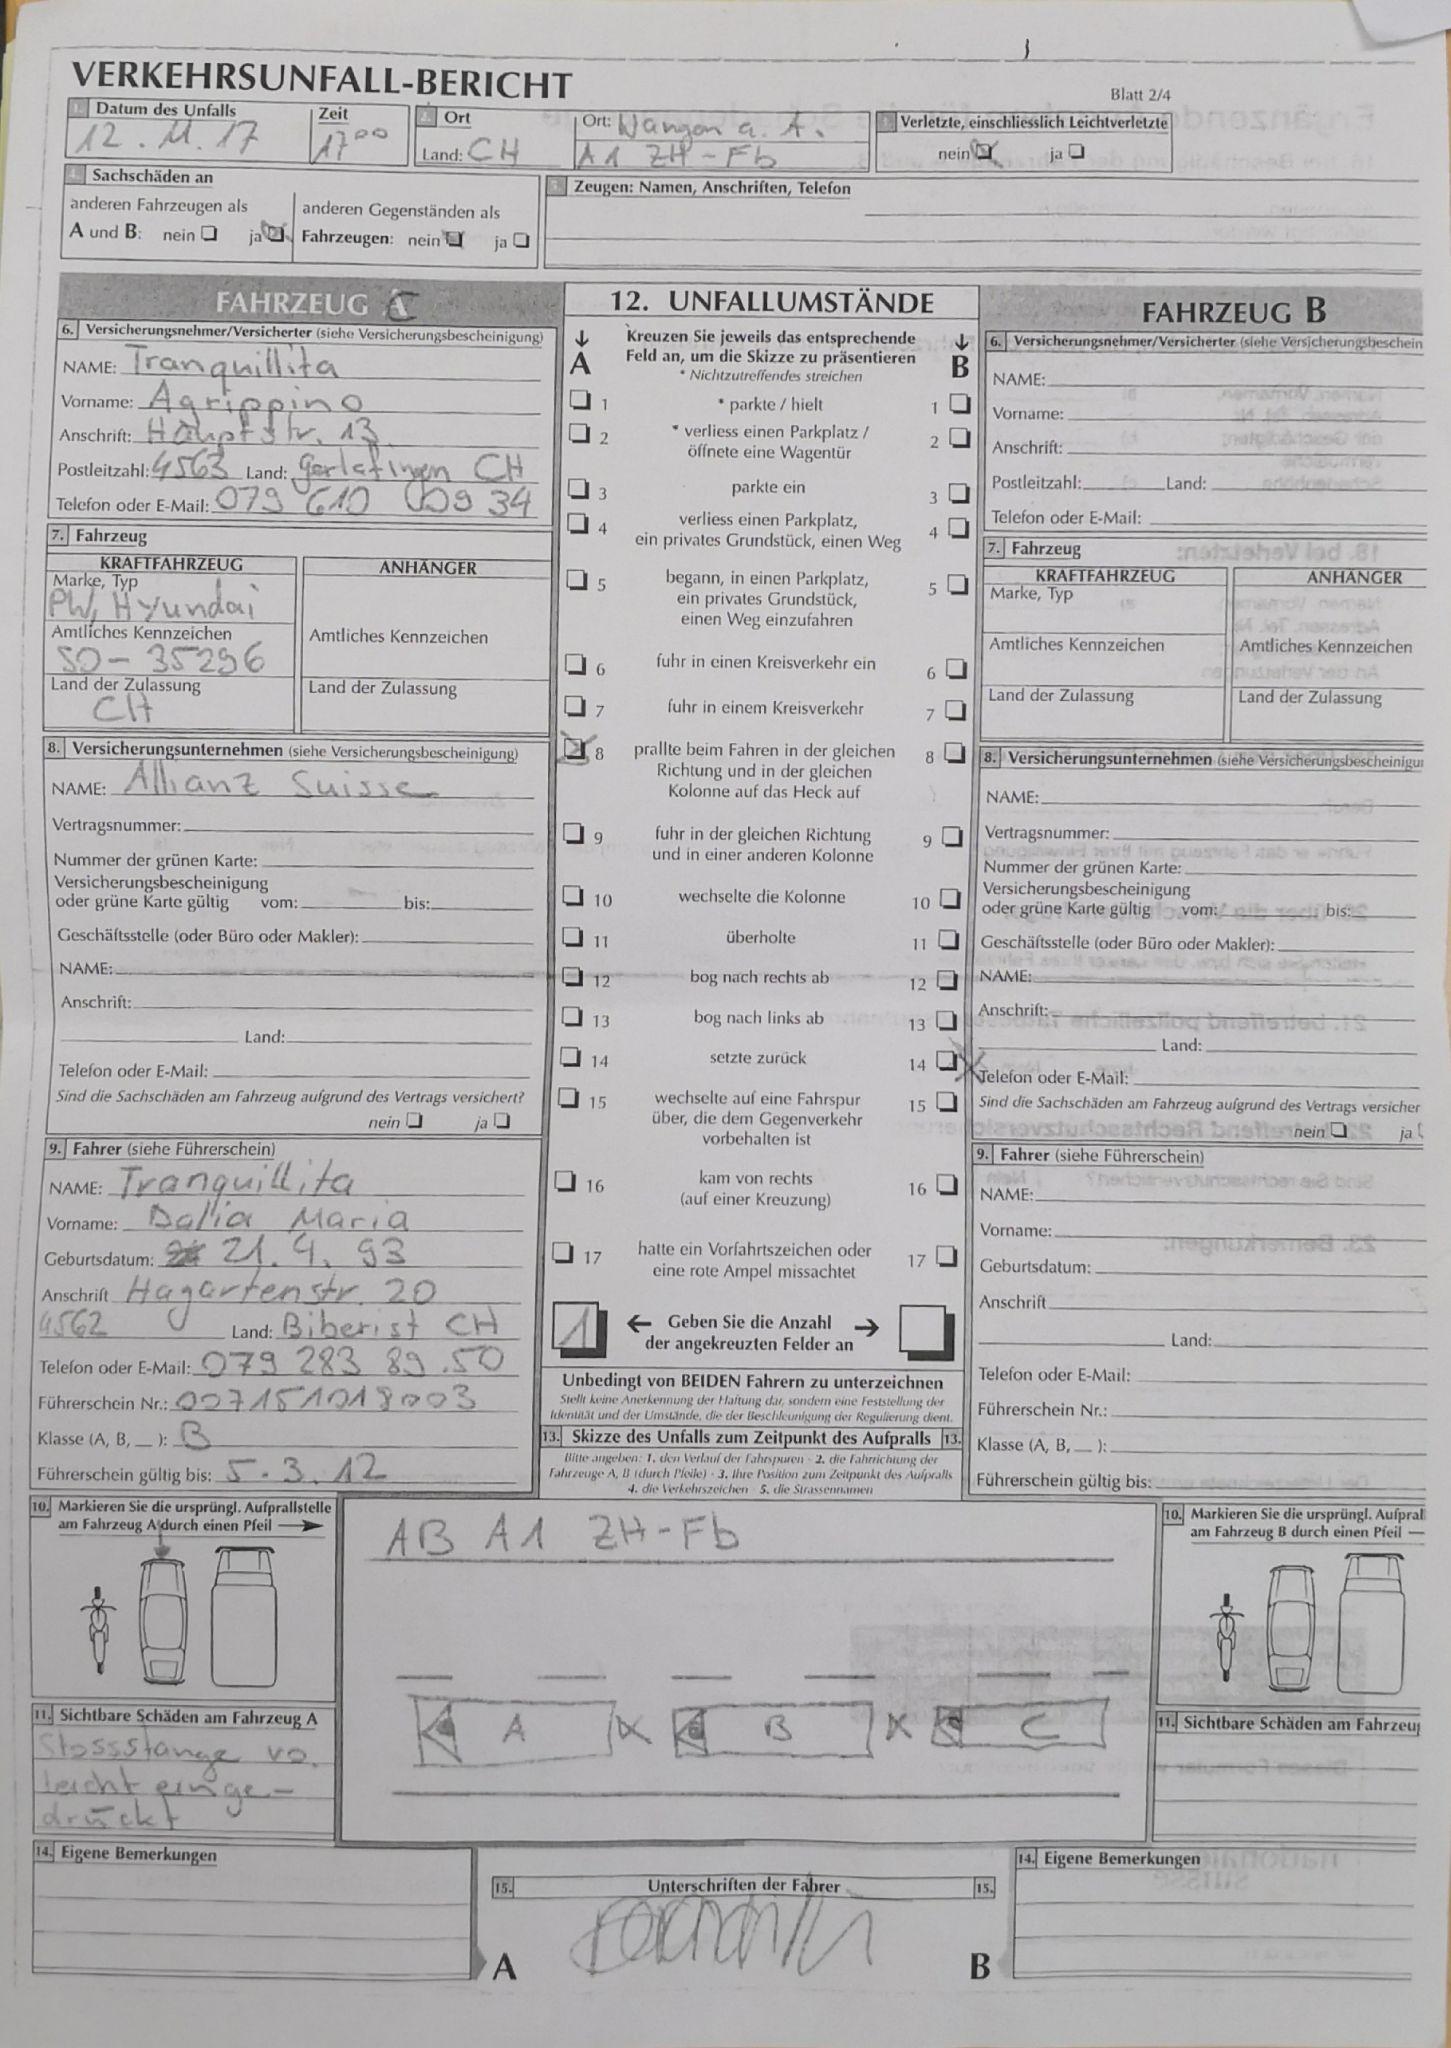 VERKEHRSUNFALL-BERICHT
Blatt 2/4
1. Datum des Unfalls Zeit
12. 11. 17 17⁰⁰
2. Ort
Land: CH
Ort: Wangen a. A.
A1 ZH-Fb
Verletzte, einschliesslich Leichtverletzte
nein ja
4. Sachschäden an
anderen Fahrzeugen als
A und B: nein ja
anderen Gegenständen als
Fahrzeugen: nein ja
Zeugen: Namen, Anschriften, Telefon
FAHRZEUG C
6. Versicherungsnehmer/Versicherter (siehe Versicherungsbescheinigung)
NAME: Tranquillita
Vorname: Agrippino
Anschrift: Hauptstr. 13
Postleitzahl: 4563 Land: Gerlafingen CH
Telefon oder E-Mail: 079 610 09 34
7. Fahrzeug
KRAFTFAHRZEUG
ANHÄNGER
Marke, Typ
PW, Hyundai
Amtliches Kennzeichen
SO - 35296
Amtliches Kennzeichen
Land der Zulassung
CH
Land der Zulassung
8. Versicherungsunternehmen (siehe Versicherungsbescheinigung)
NAME: Allianz Suisse
Vertragsnummer:
Nummer der grünen Karte:
Versicherungsbescheinigung
oder grüne Karte gültig vom: bis:
Geschäftsstelle (oder Büro oder Makler):
NAME:
Anschrift:
Land:
Telefon oder E-Mail:
Sind die Sachschäden am Fahrzeug aufgrund des Vertrags versichert?
nein ja
9. Fahrer (siehe Führerschein)
NAME: Tranquillita
Vorname: Dalia Maria
Geburtsdatum: 21. 4. 93
Anschrift Hagartenstr. 20
4562 Land: Biberist CH
Telefon oder E-Mail: 079 283 89 50
Führerschein Nr.: 007151018003
Klasse (A, B, __ ): B
Führerschein gültig bis: 5. 3. 12
10. Markieren Sie die ursprüngl. Aufprallstelle
am Fahrzeug A durch einen Pfeil
11. Sichtbare Schäden am Fahrzeug A
Stossstange vo.
leicht einge-
drückt
14. Eigene Bemerkungen
12. UNFALLUMSTÄNDE
Kreuzen Sie jeweils das entsprechende
Feld an, um die Skizze zu präsentieren
* Nichtzutreffendes streichen
A B
1 * parkte / hielt 1
2 * verliess einen Parkplatz / 2
öffnete eine Wagentür
3 parkte ein 3
4 verliess einen Parkplatz, 4
ein privates Grundstück, einen Weg
5 begann, in einen Parkplatz, 5
ein privates Grundstück,
einen Weg einzufahren
6 fuhr in einen Kreisverkehr ein 6
7 fuhr in einem Kreisverkehr 7
8 prallte beim Fahren in der gleichen 8
Richtung und in der gleichen
Kolonne auf das Heck auf
9 fuhr in der gleichen Richtung 9
und in einer anderen Kolonne
10 wechselte die Kolonne 10
11 überholte 11
12 bog nach rechts ab 12
13 bog nach links ab 13
14 setzte zurück 14
15 wechselte auf eine Fahrspur 15
über, die dem Gegenverkehr
vorbehalten ist
16 kam von rechts 16
(auf einer Kreuzung)
17 hatte ein Vorfahrtszeichen oder 17
eine rote Ampel missachtet
1 ← Geben Sie die Anzahl →
der angekreuzten Felder an
Unbedingt von BEIDEN Fahrern zu unterzeichnen
Stellt keine Anerkennung der Haftung dar, sondern eine Feststellung der
Identität und der Umstände, die der Beschleunigung der Regulierung dient.
13. Skizze des Unfalls zum Zeitpunkt des Aufpralls 13.
Bitte angeben: 1. den Verlauf der Fahrspuren · 2. die Fahrrichtung der
Fahrzeuge A, B (durch Pfeile) · 3. Ihre Position zum Zeitpunkt des Aufpralls
4. die Verkehrszeichen · 5. die Strassennamen
AB A1 ZH-Fb
A B C
15. Unterschriften der Fahrer 15.
A B
FAHRZEUG B
6. Versicherungsnehmer/Versicherter (siehe Versicherungsbeschein
NAME:
Vorname:
Anschrift:
Postleitzahl: Land:
Telefon oder E-Mail:
7. Fahrzeug
KRAFTFAHRZEUG
ANHÄNGER
Marke, Typ
Amtliches Kennzeichen
Amtliches Kennzeichen
Land der Zulassung
Land der Zulassung
8. Versicherungsunternehmen (siehe Versicherungsbescheinigun
NAME:
Vertragsnummer:
Nummer der grünen Karte:
Versicherungsbescheinigung
oder grüne Karte gültig vom: bis:
Geschäftsstelle (oder Büro oder Makler):
NAME:
Anschrift:
Land:
Telefon oder E-Mail:
Sind die Sachschäden am Fahrzeug aufgrund des Vertrags versicher
nein ja
9. Fahrer (siehe Führerschein)
NAME:
Vorname:
Geburtsdatum:
Anschrift
Land:
Telefon oder E-Mail:
Führerschein Nr.:
Klasse (A, B, __ ):
Führerschein gültig bis:
10. Markieren Sie die ursprüngl. Aufpral
am Fahrzeug B durch einen Pfeil
11. Sichtbare Schäden am Fahrzeug
14. Eigene Bemerkungen